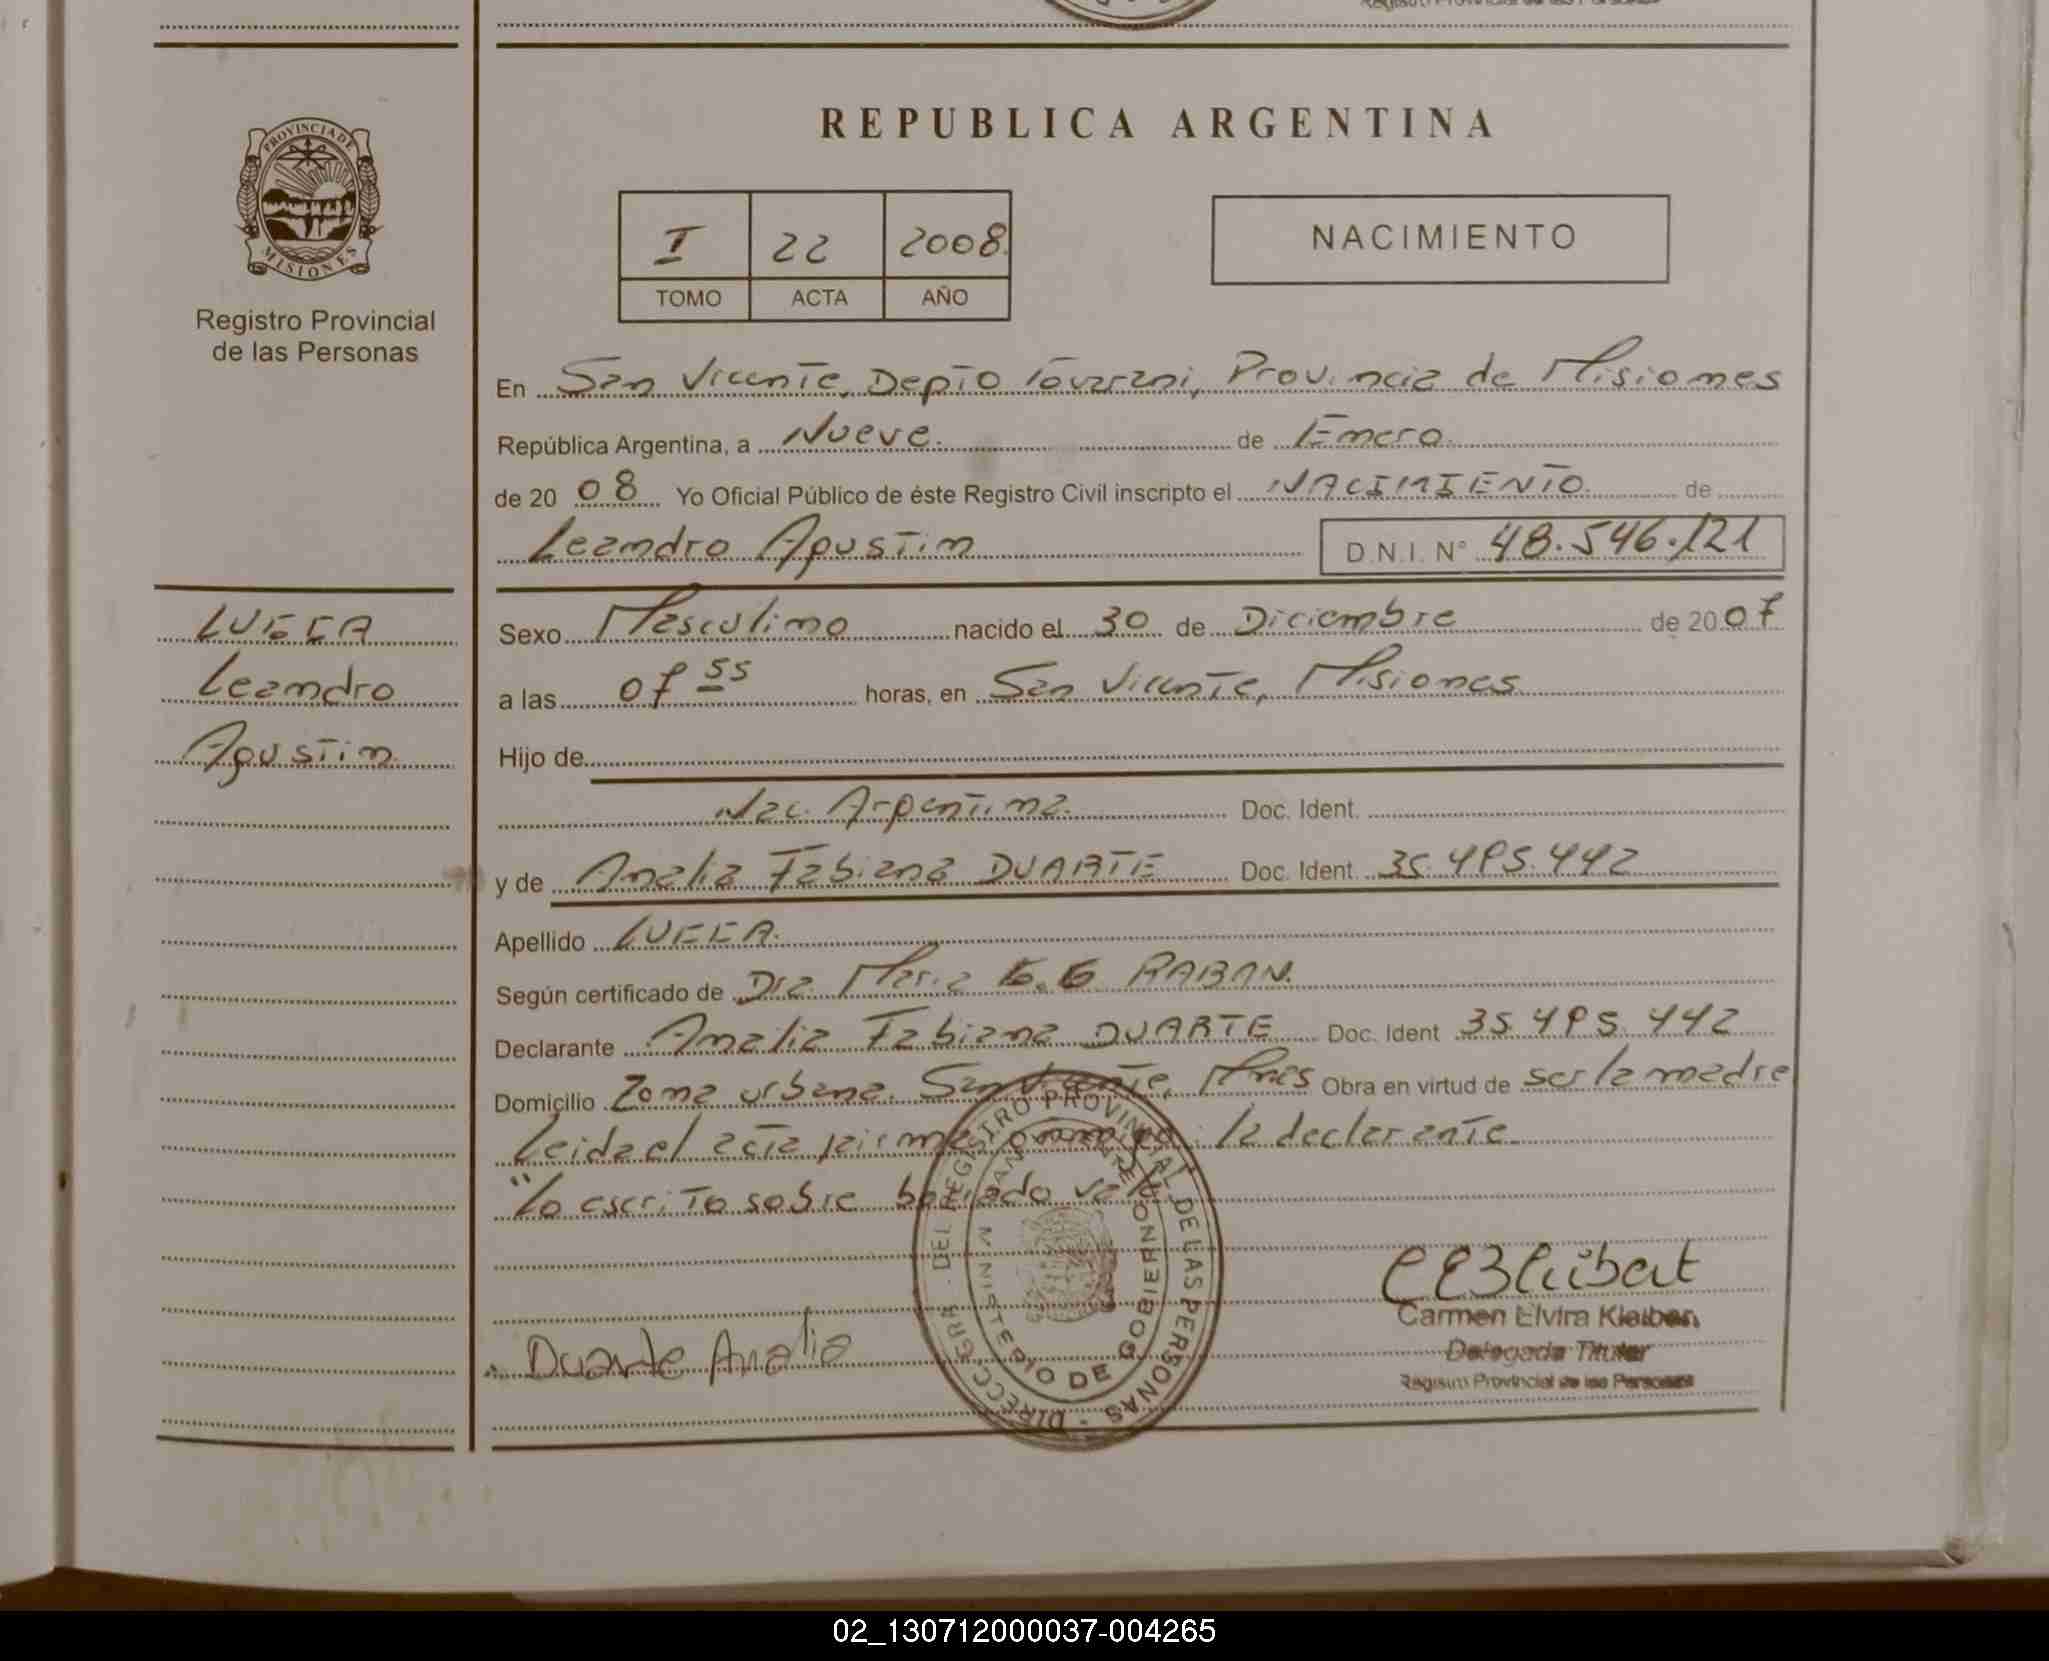 PROVINCIA DE
MISIONES
Registro Provincial
de las Personas
REPUBLICA ARGENTINA
I 22 2008.
TOMO ACTA AÑO
NACIMIENTO
En San Vicente, Depto Guaraní, Provincia de Misiones
República Argentina, a Nueve. de Enero.
de 20 08 Yo Oficial Público de éste Registro Civil inscripto el NACIMIENTO. de
Leandro Agustin D.N.I. N° 48.546.121
Leandro
Agustin
Sexo Masculino nacido el 30 de Diciembre de 20 07
a las 07 55 horas, en San Vicente, Misiones
Hijo de
Nac. Argentina. Doc. Ident.
y de Analia Fabiana DUARTE Doc. Ident. 35.495.442
Apellido
Según certificado de Dra. Maria
Declarante Analia Fabiana DUARTE Doc. Ident 35 495 442
Domicilio Zona urbana. San Vicente, Mnes Obra en virtud de ser la madre
Leida el acta firma conmigo: la declarante.
"Lo escrito sobre borrado vale
DIRECC. GRAL. DEL REGISTRO PROVINCIAL DE LAS PERSONAS
MINISTERIO DE GOBIERNO
Duarte Analia
Carmen Elvira
Delegada Titular
Registro Provincial de las Personas
02_130712000037-004265